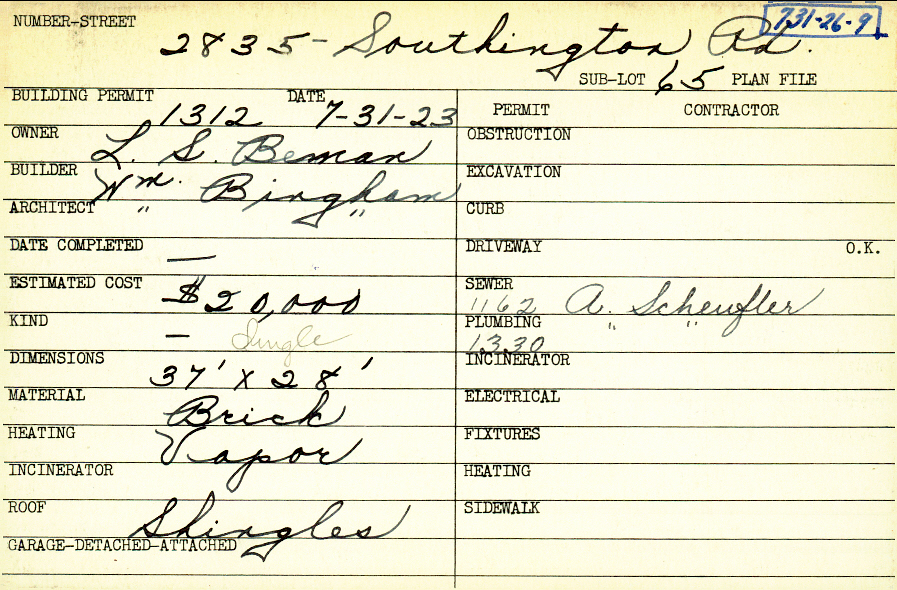 NUMBER-STREET 731-26-9
2835 - Southington Rd.
SUB-LOT 65 PLAN FILE
BUILDING PERMIT 1312 DATE 7-31-23
OWNER L. S. Beman
BUILDER Wm. Bingham
ARCHITECT " "
DATE COMPLETED —
ESTIMATED COST $20,000
KIND — Single
DIMENSIONS 37' X 28'
MATERIAL Brick
HEATING Vapor
INCINERATOR
ROOF Shingles
GARAGE-DETACHED-ATTACHED
PERMIT CONTRACTOR
OBSTRUCTION
EXCAVATION
CURB
DRIVEWAY O.K.
SEWER 1162 A. Scheufler
PLUMBING 1330 " "
INCINERATOR
ELECTRICAL
FIXTURES
HEATING
SIDEWALK